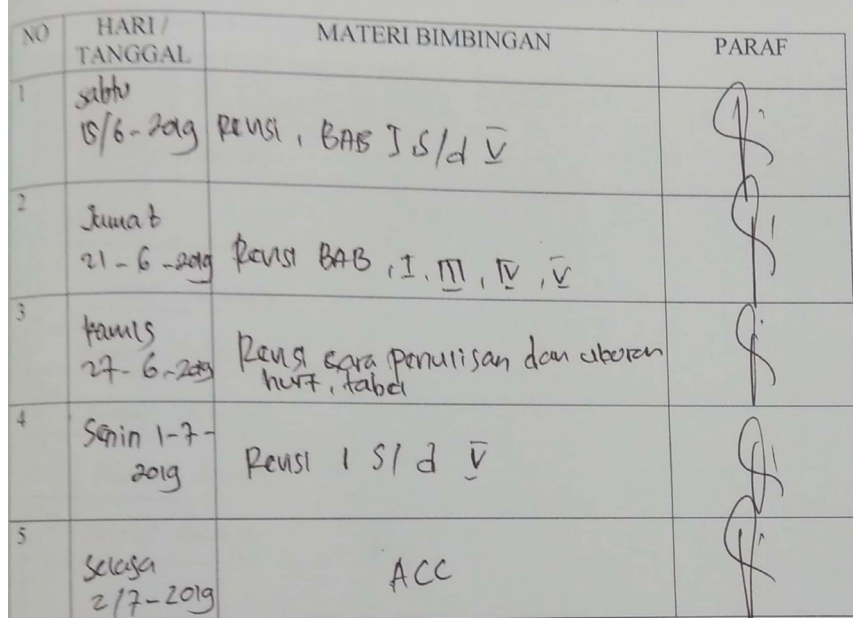 NO HARI / TANGGAL MATERI BIMBINGAN PARAF
1 sabtu
15/6-2019 Revisi, BAB I S/d V
2 Jumat
21-6-2019 Revisi BAB, I, III, IV, V
3 Kamis
27-6-2019 Revisi cara penulisan dan ukuran
huruf, tabel
4 Senin 1-7-
2019 Revisi I S/d V
5 Selasa
2/7-2019 ACC